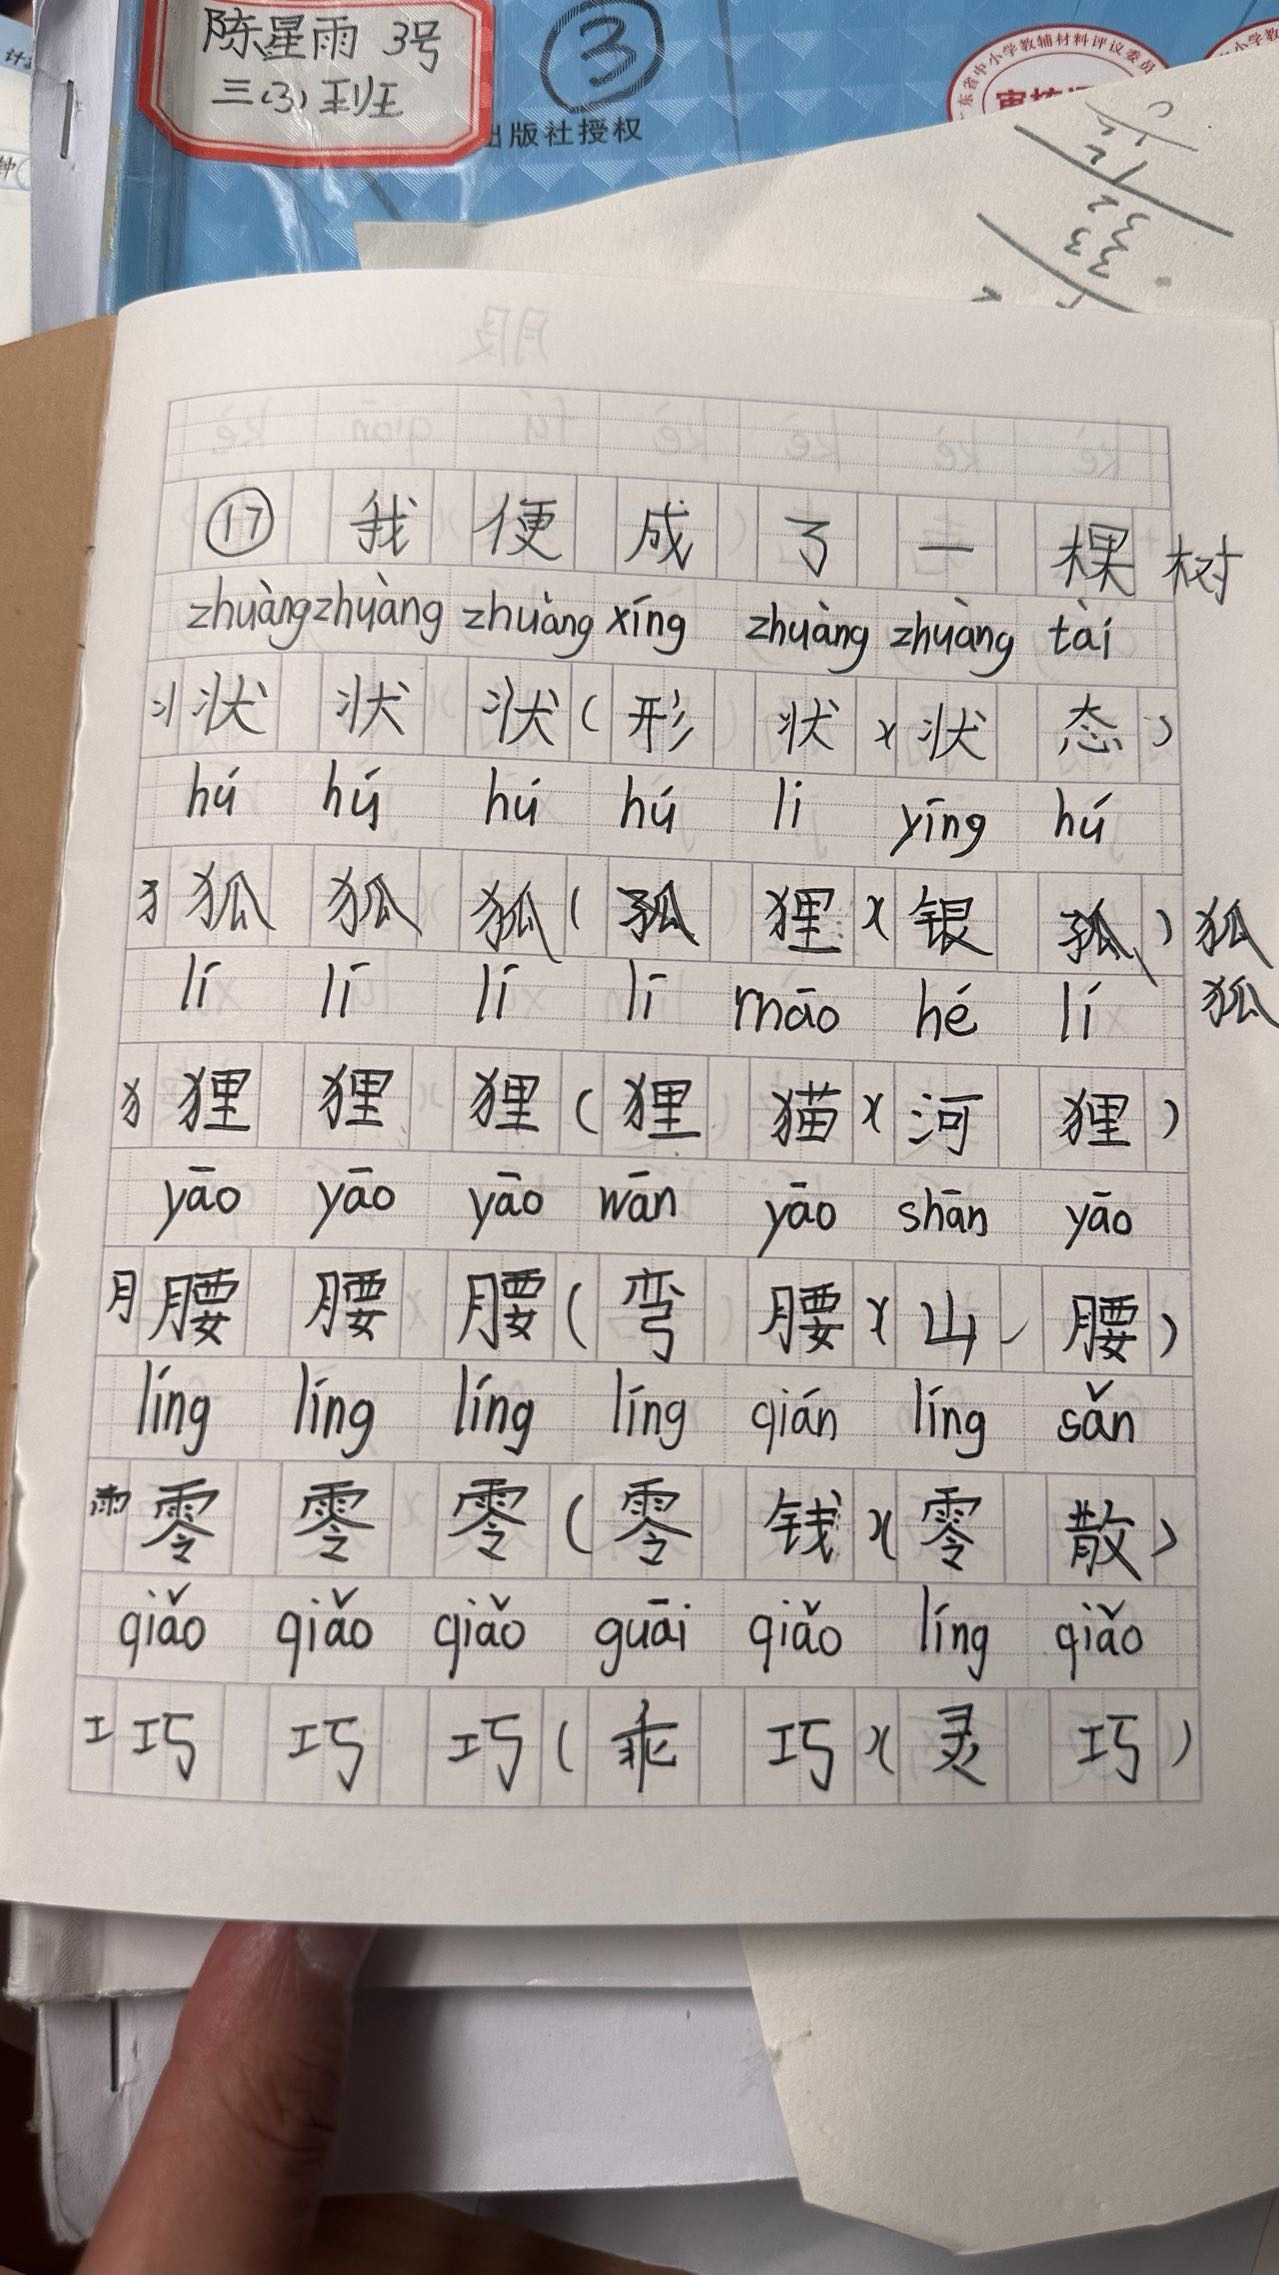 陈星雨 3号
三(3)班
③
出版社授权
省中小学教辅材料评议委员
⑰ 我便成了一棵树
zhuàng zhuàng zhuàng xíng zhuàng zhuàng tài
丬状 状 状(形状)(状态)
hú hú hú hú li yíng hú
犭狐 狐 狐(孤狸)(银孤)狐
狐
lí lí lí lí māo hé lí
犭狸 狸 狸(狸猫)(河狸)
yāo yāo yāo wān yāo shān yāo
月腰 腰 腰(弯腰)(山腰)
líng líng líng líng qián líng sǎn
雨零 零 零(零钱)(零散)
qiǎo qiǎo qiǎo guāi qiǎo líng qiǎo
工巧 巧 巧(乖巧)(灵巧)